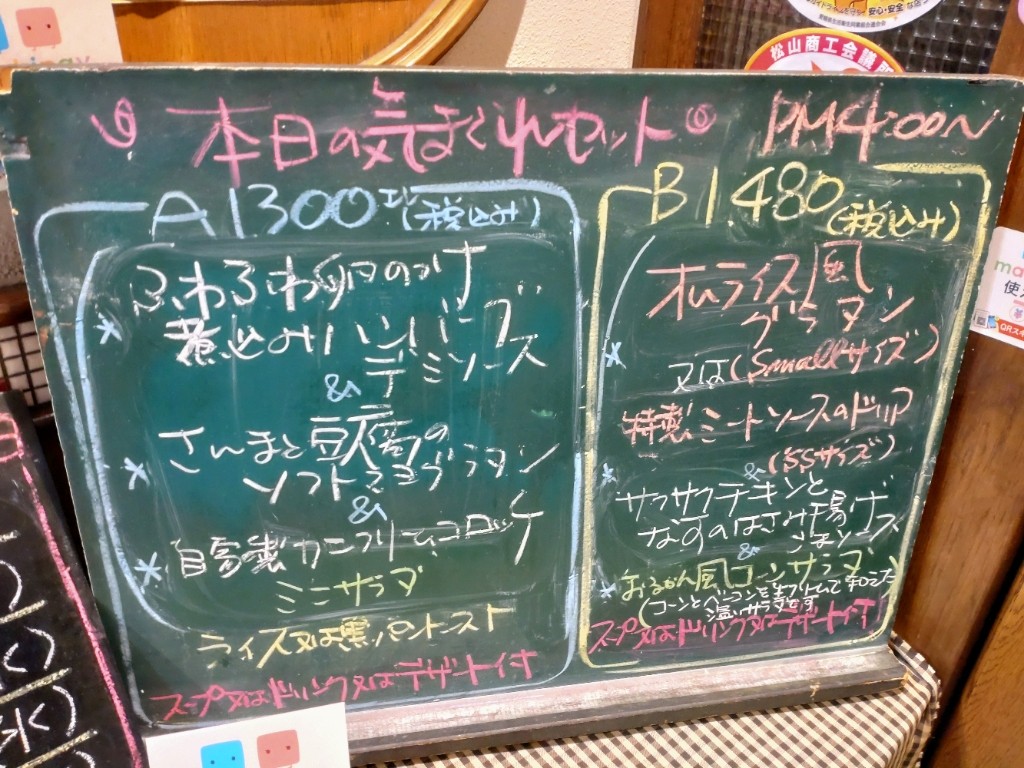 本日の気まぐれセット PM4:00〜
A 1300 (税込み)
ふわふわ卵のっけ
* 煮込みハンバーグ
デミソース
&
* さんまと豆腐の
ソフトマヨグラタン
&
* 自家製カニクリームコロッケ
ミニサラダ
ライス又は黒パントースト
スープ又はドリンク又はデザート付
B 1480 (税込み)
オムライス風
グラタン
* 又は (Smallサイズ)
特製ミートソースのドリア
(SSサイズ)
&
* サクサクチキンと
なすのはさみ揚げ
&
* 風コーンサラダ
(コーンとベーコンを生クリームで和えた
温サラダです
スープ又はドリンク又はデザート付
松山商工会議所
安心・安全